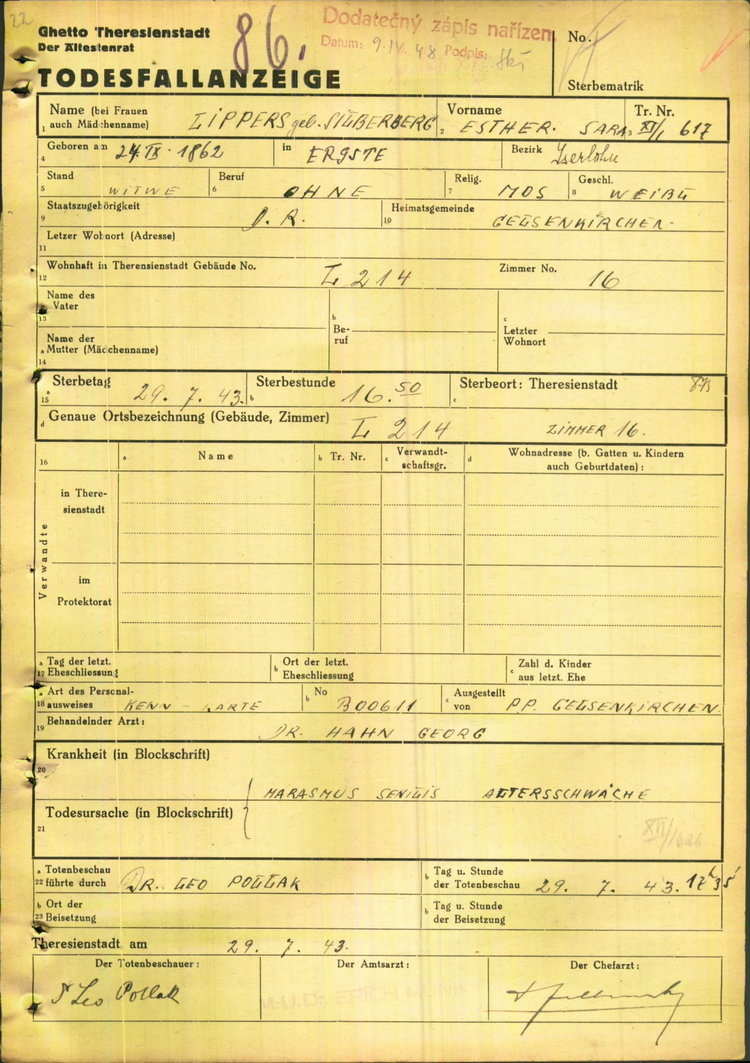 22
Ghetto Theresienstadt
Der Ältestenrat
86.
Dodatečný zápis nařízen.
Datum: 9.IV.48 Podpis:
No.
TODESFALLANZEIGE
Sterbematrik
Name (bei Frauen
1 auch Mädchenname) LIPPERS geb. SILBERBERG
Vorname
2 ESTHER. SARA
Tr. Nr.
3 XI/1 617
Geboren am
4 24.IX.1862
in ERGSTE
Bezirk Iserlohn
Stand
5 WITWE
Beruf
6 OHNE
Relig.
7 MOS
Geschl.
8 WEIBL
Staatszugehörigkeit
9 D.R.
Heimatsgemeinde
10 GELSENKIRCHEN.
Letzer Wohnort (Adresse)
11
Wohnhaft in Theresienstadt Gebäude No. L 214
12
Zimmer No. 16
Name des
Vater
13
b
Be-
ruf
c
Letzter
Wohnort
Name der
a Mutter (Mädchenname)
14
a Sterbetag
15 29.7.43.
Sterbestunde
b 16.50
Sterbeort: Theresienstadt
c
d Genaue Ortsbezeichnung (Gebäude, Zimmer) L 214 ZIMMER 16.
16
a Name
b Tr. Nr.
c Verwandt-
schaftsgr.
d Wohnadresse (b. Gatten u. Kindern
auch Geburtdaten):
Verwandte
in There-
sienstadt
im
Protektorat
a Tag der letzt.
17 Eheschliessung
b Ort der letzt.
Eheschliessung
c Zahl d. Kinder
aus letzt. Ehe
a Art des Personal-
18 ausweises KENN-KARTE
b No B00611
c Ausgestellt
von PP. GELSENKIRCHEN.
19 Behandelnder Arzt: DR. HAHN GEORG
Krankheit (in Blockschrift)
20
MARASMUS SENILIS ALTERSSCHWÄCHE
Todesursache (in Blockschrift)
21
a Totenbeschau
22 führte durch DR. LEO POLLAK
b Tag u. Stunde
der Totenbeschau 29.7.43. 17h35'
b Ort der
23 Beisetzung
b Tag u. Stunde
der Beisetzung
Theresienstadt am 29.7.43.
Der Totenbeschauer:
Der Amtsarzt:
Der Chefarzt:
Leo Pollak
M.U.Dr. ERICH MUNK